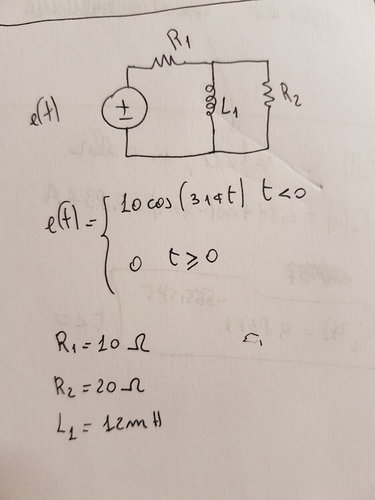 R1
+
−
e(t)
L1
R2
e(t) = { 10 cos (314t) t<0
0 t ⩾ 0
R1 = 10 Ω
R2 = 20 Ω
L1 = 12 mH